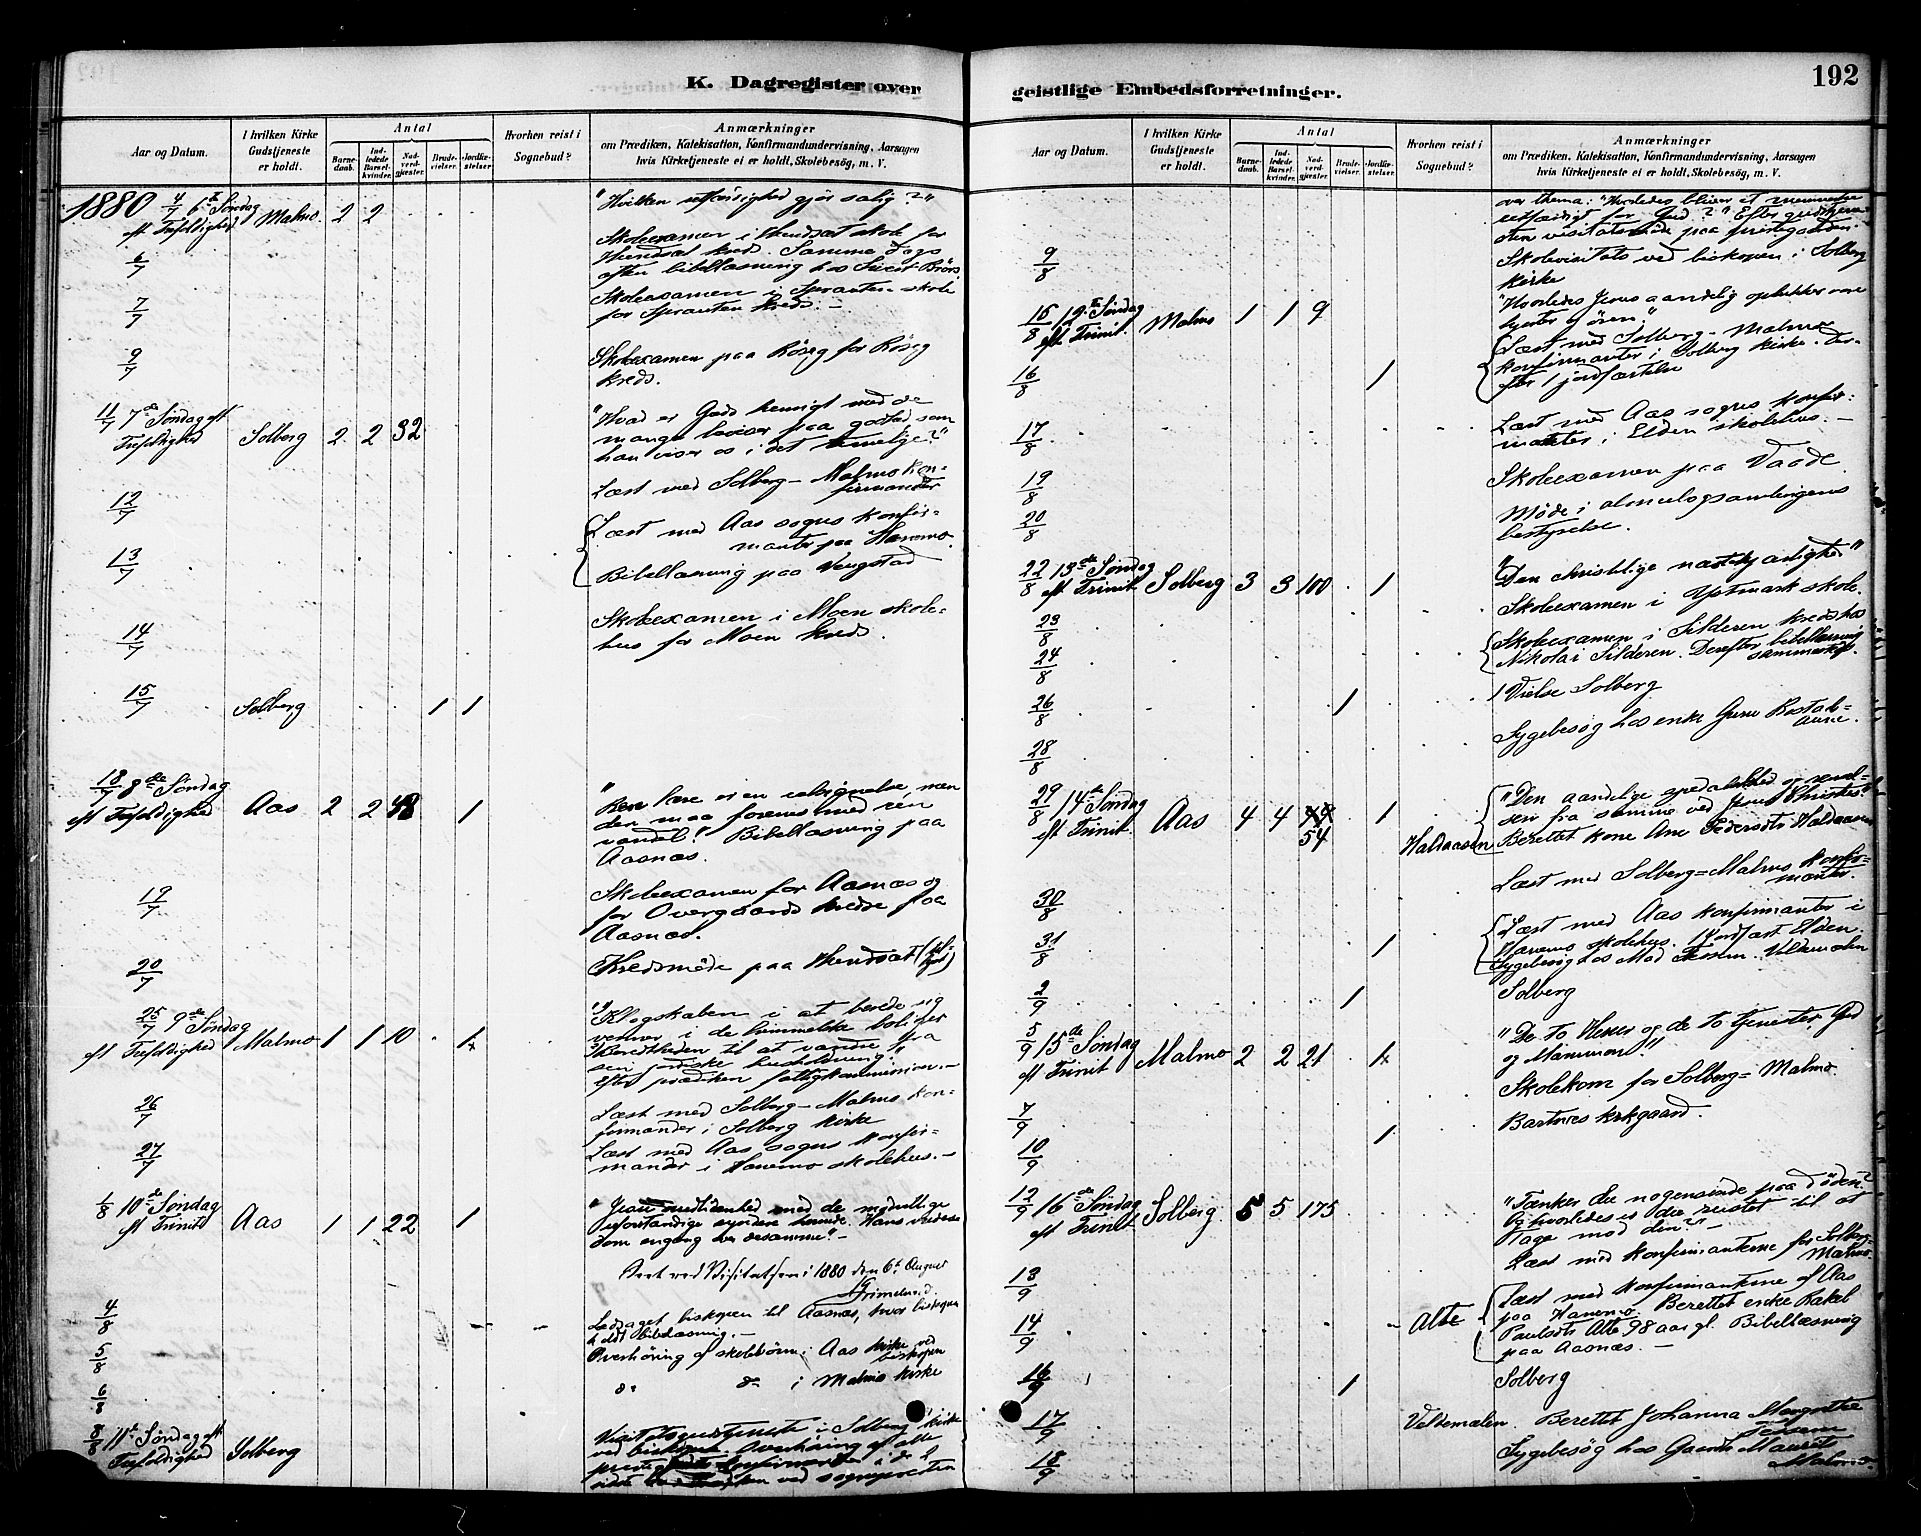 K. Dagregister over
geistlige Embedsforretninger.
192
Aar og Datum.
I hvilken Kirke Gudstjeneste er holdt.
Antal
Barnedaab.
Indledede Barselkvinder.
Nadverdgjæster.
Brudevielser.
Jordfæstelser.
Hvorhen reist i Sognebud?
Anmærkninger
om Prædiken, Katekisation, Konfirmandundervisning, Aarsagen
hvis Kirketjeneste ei er holdt, Skolebesøg, m. V.
1880 4/7 6te Søndag
eft Trefoldighed Malmo 2 2
"Hvilken retfærdighed gjør salig?"
6/7 Skoleexamen i Hendsæt skole for
Hendsæt kreds. Samme dags
aften bibellæsning hos
7/7 Skoleexamen i skole
for kreds.
9/7 Skoleexamen paa Röseg for Röseg
kreds.
11/7 7de Søndag eft
Trefoldighed Solberg 2 2 32
"Hvad er Guds hensigt med de
mange beviser paa godhed som
han viser os i det timelige?"
12/7 Læst med Solberg-Malmo konfirmander
13/7 Læst med Aas sogns konfirmanter paa Hanemo.
Bibellæsning paa Vengstad
14/7 Skoleexamen i Moen skolehus for Moen kreds.
15/7 Solberg 1 1
18/7 8de Søndag
eft Trefoldighed Aas 2 2 43 1
"Ren lære er en velsignelse, men
den maa forenes med ren
vandel." Bibellæsning paa
Aasnæs.
19/7 Skoleexamen for Aasnæs og
for Overgaards kredse paa
Aasnæs.
20/7 Kredsmöde paa Hendsæt
25/7 9de Søndag
eft Trefoldighed Malmo 1 1 10 1
"Klogskaben i at berede sig
venner i de himmelske boliger
Beredtheden til at vandre fra
sin jordiske husholdning."
Efter prædiken fattigkommission.-
26/7 Læst med Solberg-Malmo konfirmander i Solberg kirke
27/7 Læst med Aas sogns konfirmander i Hanemo skolehus.-
1/8 10de Søndag
eft Trinit Aas 1 1 22 1
"Jesu medlidenhed med de modvillige
uforstandige syndere herinde. Hans vrede
dom engang over desamme."-
Seet ved Visitatsen i 1880 den 6te August
Grimelund.
4/8 Ledsaget biskopen til Aasnæs, hvor biskopen
holdt bibellæsning.-
5/8 Overhöring af skolebörn i Aas kirke ved
biskopen
6/8 do do i Malmo kirke
8/8 11te Søndag eft
Trefoldighed Solberg
Visitatsgudstjeneste i Solberg kirke
ved biskopen. Overhöring af alle
over thema: "Hvorledes bliver et menneske
retfærdigt for Gud?" Efter gudstjenesten visitatsmöde paa prestegaarden.
9/8 Skolevisitats ved biskopen i Solberg
kirke
15/8 12te Søndag
eft Trinit. Malmo 1 1 9
"Hvorledes Jesus aandelig oplukker vore
hjerter og ören."
16/8 1
Læst med Solberg-Malmo
konfirmanter i Solberg kirke. Derefter 1 jordfæstelse
17/8 Læst med Aas sogns konfirmanter i Elden skolehus.-
19/8 Skoleexamen paa Vaade
20/8 Möde i almuebogsamlingens
bestyrelse.
22/8 13de Søndag
eft Trinit Solberg 3 3 100 1
"Den christelige næstekjærlighed"
23/8 Skoleexamen i Östmark skole.
24/8 Skoleexamen i Silderen kreds hos
Nikolai Silderen. Derefter bibellæsning
sammesteds.
26/8 1 1 Vielse Solberg
28/8 Sygebesög hos enke Gune
29/8 14de Søndag
eft Trinit. Aas 4 4 54 1 Haldaasen
"Den aandelige spedalskhed og renselsen fra samme ved Jesus Christus."
Berettet kone Ane Pedersdtr Haldaasen
30/8 Læst med Solberg=Malmo konfirmanter.
31/8 1
Læst med Aas konfirmanter i
Hanemo skolehus. 1 Jordfæst Elden.
Sygebesög hos Mad Tessem. Veldemalen
2/9 1 Solberg
5/9 15de Søndag
eft Trinit Malmo 2 2 21 1
"De to Herrer og de to tjenester, Gud
og Mammon."
7/9 Skolekom for Solberg=Malmo.
10/9 1 Bartnes kirkgaard.
12/9 16de Søndag
eft Trinit Solberg 5 5 175
"Tænker du nogensinde paa döden?
Og hvorledes er du rustet til at
tage mod den?"-
13/9 Læst med konfirmanterne for Solberg-Malmo.
14/9 Alte
Læst med konfirmanterne af Aas
paa Hanemo. Berettet enke Rakel
Paulsdtr Alte 98 aar gl. Bibellæsning
paa Aasnæs.-
16/9 1 Solberg
17/9 Veldemalen. Berettet Johanna Margrethe
Tessem
18/9 Sygebesög hos Gaardm
Malmo.